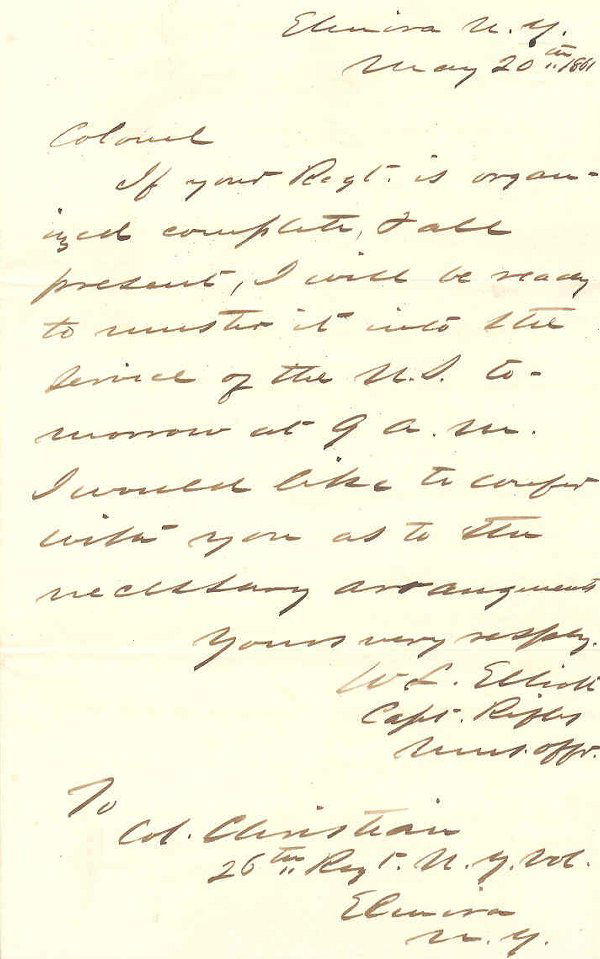 Elmira N.Y.
May 20th 1861
Colonel
If your Regt. is organ-
ized complete, & all
present, I will be ready
to muster it into the
service of the U.S. to-
morrow at 9 A.M.
I would like to confer
with you as to the
necessary arrangements
Yours very respfy.
W L. Elliott
Capt. Rifles
Mus. offr.
To
Col. Christian
26th Regt. N.Y. Vol.
Elmira
N.Y.